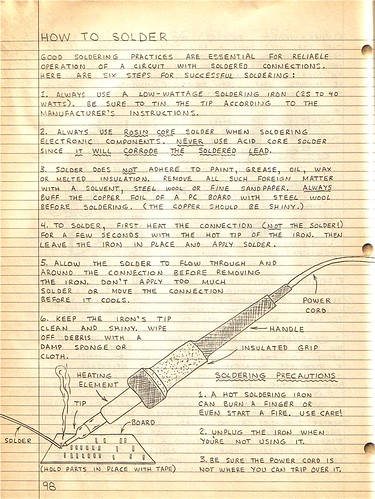 HOW TO SOLDER
GOOD SOLDERING PRACTICES ARE ESSENTIAL FOR RELIABLE
OPERATION OF A CIRCUIT WITH SOLDERED CONNECTIONS.
HERE ARE SIX STEPS FOR SUCCESSFUL SOLDERING:
1. ALWAYS USE A LOW-WATTAGE SOLDERING IRON (25 TO 40
WATTS). BE SURE TO TIN THE TIP ACCORDING TO THE
MANUFACTURER'S INSTRUCTIONS.
2. ALWAYS USE ROSIN CORE SOLDER WHEN SOLDERING
ELECTRONIC COMPONENTS. NEVER USE ACID CORE SOLDER
SINCE IT WILL CORRODE THE SOLDERED LEAD.
3. SOLDER DOES NOT ADHERE TO PAINT, GREASE, OIL, WAX
OR MELTED INSULATION. REMOVE ALL SUCH FOREIGN MATTER
WITH A SOLVENT, STEEL WOOL OR FINE SANDPAPER. ALWAYS
BUFF THE COPPER FOIL OF A PC BOARD WITH STEEL WOOL
BEFORE SOLDERING. (THE COPPER SHOULD BE SHINY.)
4. TO SOLDER, FIRST HEAT THE CONNECTION (NOT THE SOLDER!)
FOR A FEW SECONDS WITH THE HOT TIP OF THE IRON. THEN
LEAVE THE IRON IN PLACE AND APPLY SOLDER.
5. ALLOW THE SOLDER TO FLOW THROUGH AND
AROUND THE CONNECTION BEFORE REMOVING
THE IRON. DON'T APPLY TOO MUCH
SOLDER OR MOVE THE CONNECTION
BEFORE IT COOLS.
6. KEEP THE IRON'S TIP
CLEAN AND SHINY. WIPE
OFF DEBRIS WITH A
DAMP SPONGE OR
CLOTH.
POWER
CORD
HANDLE
INSULATED GRIP
HEATING
ELEMENT
TIP
BOARD
SOLDER
(HOLD PARTS IN PLACE WITH TAPE)
SOLDERING PRECAUTIONS
1. A HOT SOLDERING IRON
CAN BURN A FINGER OR
EVEN START A FIRE. USE CARE!
2. UNPLUG THE IRON WHEN
YOU'RE NOT USING IT.
3. BE SURE THE POWER CORD IS
NOT WHERE YOU CAN TRIP OVER IT.
98